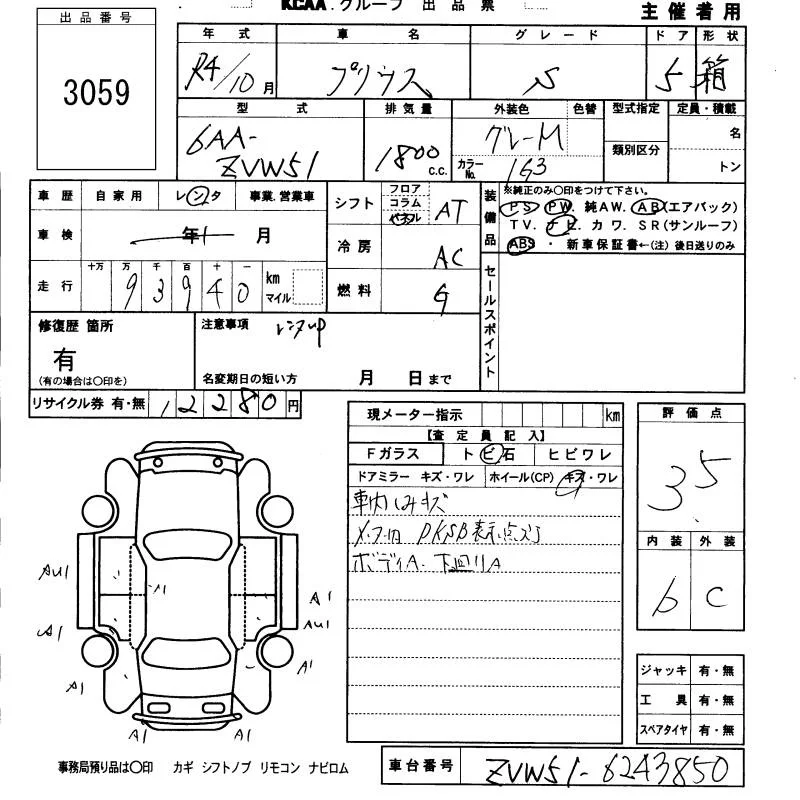 KCAA.グループ 出品票
主催者用
出品番号
3059
年式 車名 グレード ドア 形状
R4/10月 プリウス S 5 箱
型式 排気量 外装色 色替 型式指定 定員・積載
6AA-ZVW51 1800 c.c. グレーM カラーNo. 1G3 類別区分 名 トン
車歴 自家用 レンタ 事業.営業車
車検 年 月
走行 十万 万 千 百 十 一
93940 km マイル
シフト フロア コラム パネル AT
冷房 AC
燃料 G
装備品
※純正のみ○印をつけて下さい。
PS PW 純AW. AB(エアバック)
TV. ナビ カワ SR(サンルーフ)
ABS ・ 新車保証書←(注)後日送りのみ
セールスポイント
修復歴 箇所
有
(有の場合は○印を)
注意事項 レンタup
名変期日の短い方 月 日まで
リサイクル券 有・無 12280円
現メーター指示 km
【査定員記入】
Fガラス トビ石 ヒビワレ
ドアミラー キズ・ワレ ホイール(CP) キズ・ワレ
車内しみキズ
PKSB表示点ズミ
ボディA. 下回りA
評価点
3.5
内装 外装
b C
AU1
A1
A1
A1
AU1
A1
A1
A1
ジャッキ 有・無
工具 有・無
スペアタイヤ 有・無
事務局預り品は○印 カギ シフトノブ リモコン ナビロム
車台番号 ZVW51-6243850